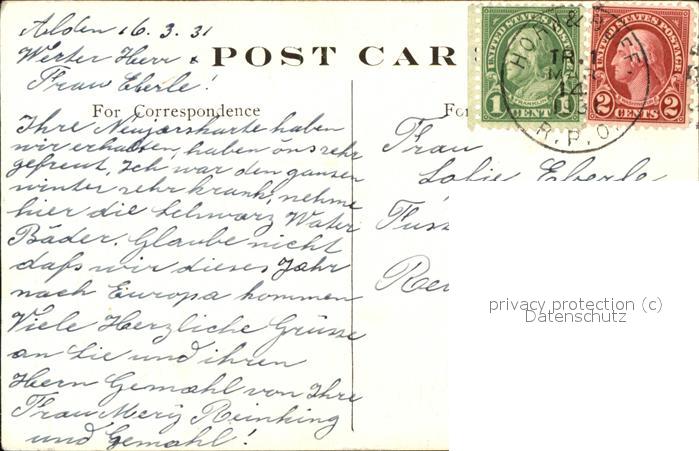 Alden 16.3.31
Werter Herr &
Frau Eberle!
POST CAR
For Correspondence
Ihre Neujarskarte haben
wir erhalten, haben öns sehr
gefreut, Ich war den gansen
winter sehr krank, nehme
hier die Schwarz Water
Bäder. Glaube nicht
dafs wir dieses Jahr
nach Europa kommen
Viele Herzliche Grüsse
an Sie und ihren
Herrn Gemahl von Ihre
Frau Mery Reinking
und Gemahl!
UNITED STATES POSTAGE
FRANKLIN
1 CENT 1
UNITED STATES POSTAGE
2 CENTS 2
HOR
TR.
MA
14
R.P.O.
Fo
Frau
Sofie Eberle
privacy protection (c)
Datenschutz